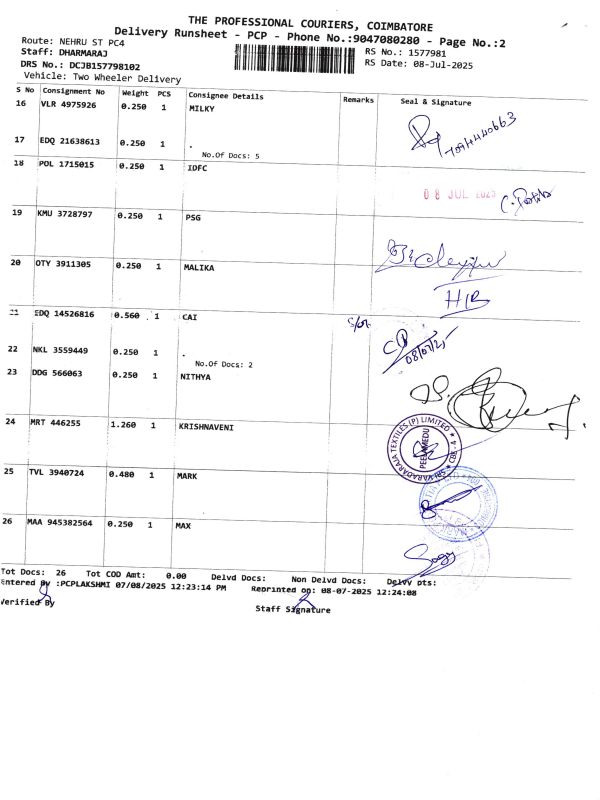 THE PROFESSIONAL COURIERS, COIMBATORE
Delivery Runsheet - PCP - Phone No.:9047080280 - Page No.:2
Route: NEHRU ST PC4 RS No.: 1577981
Staff: DHARMARAJ RS Date: 08-Jul-2025
DRS No.: DCJB157798102
Vehicle: Two Wheeler Delivery
S No Consignment No Weight PCS Consignee Details Remarks Seal & Signature
16 VLR 4975926 0.250 1 MILKY
17 EDQ 21638613 0.250 1 .
No.Of Docs: 5
18 POL 1715015 0.250 1 IDFC
08 JUL 2025
19 KMU 3728797 0.250 1 PSG
20 OTY 3911305 0.250 1 MALIKA
HIB
21 EDQ 14526816 0.560 1 CAI
08/07/25
22 NKL 3559449 0.250 1 .
No.Of Docs: 2
23 DDG 566063 0.250 1 NITHYA
24 MRT 446255 1.260 1 KRISHNAVENI
SRI VARADARAJA TEXTILES (P) LIMITED ★ CBE - 4 ★
PEELAMEDU
25 TVL 3940724 0.480 1 MARK
26 MAA 945382564 0.250 1 MAX
Tot Docs: 26 Tot COD Amt: 0.00 Delvd Docs: Non Delvd Docs: Delvy pts:
Entered By :PCPLAKSHMI 07/08/2025 12:23:14 PM Reprinted on: 08-07-2025 12:24:08
Verified By Staff Signature